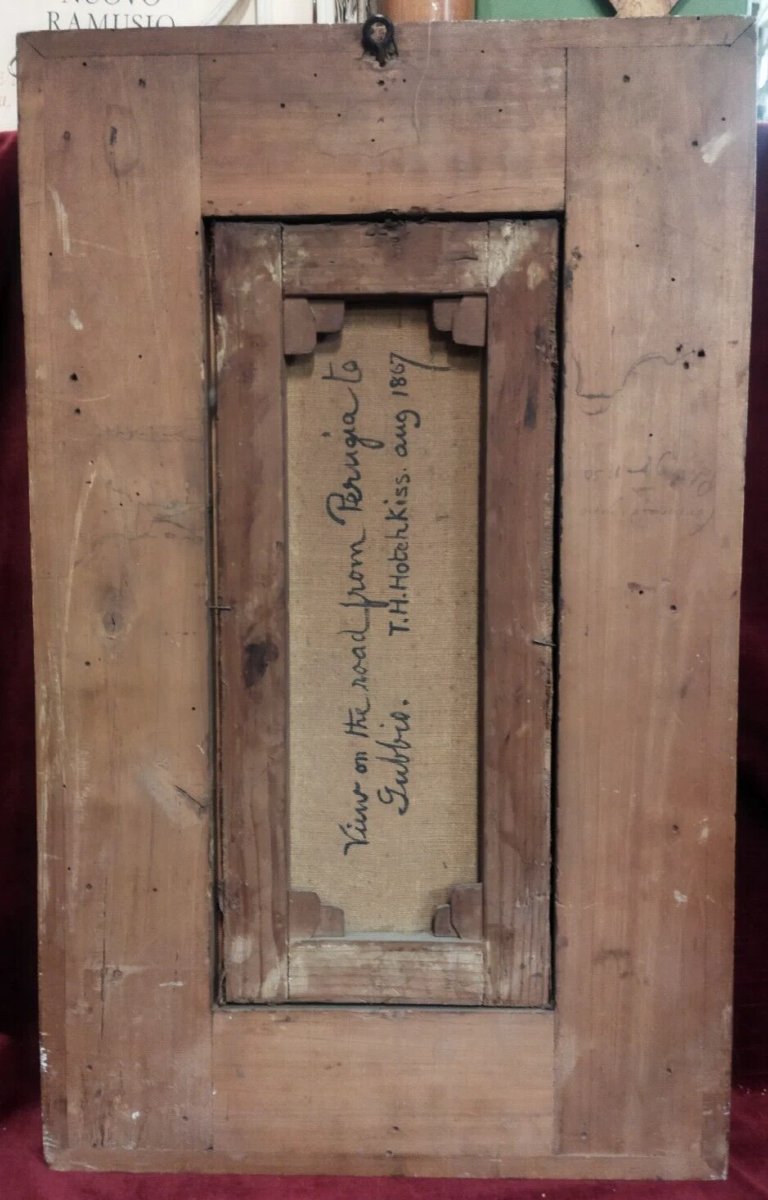 NUOVO
RAMUSIO
View on the road from Perugia to
Gubbio. T.H.Hotchkiss. aug 1867